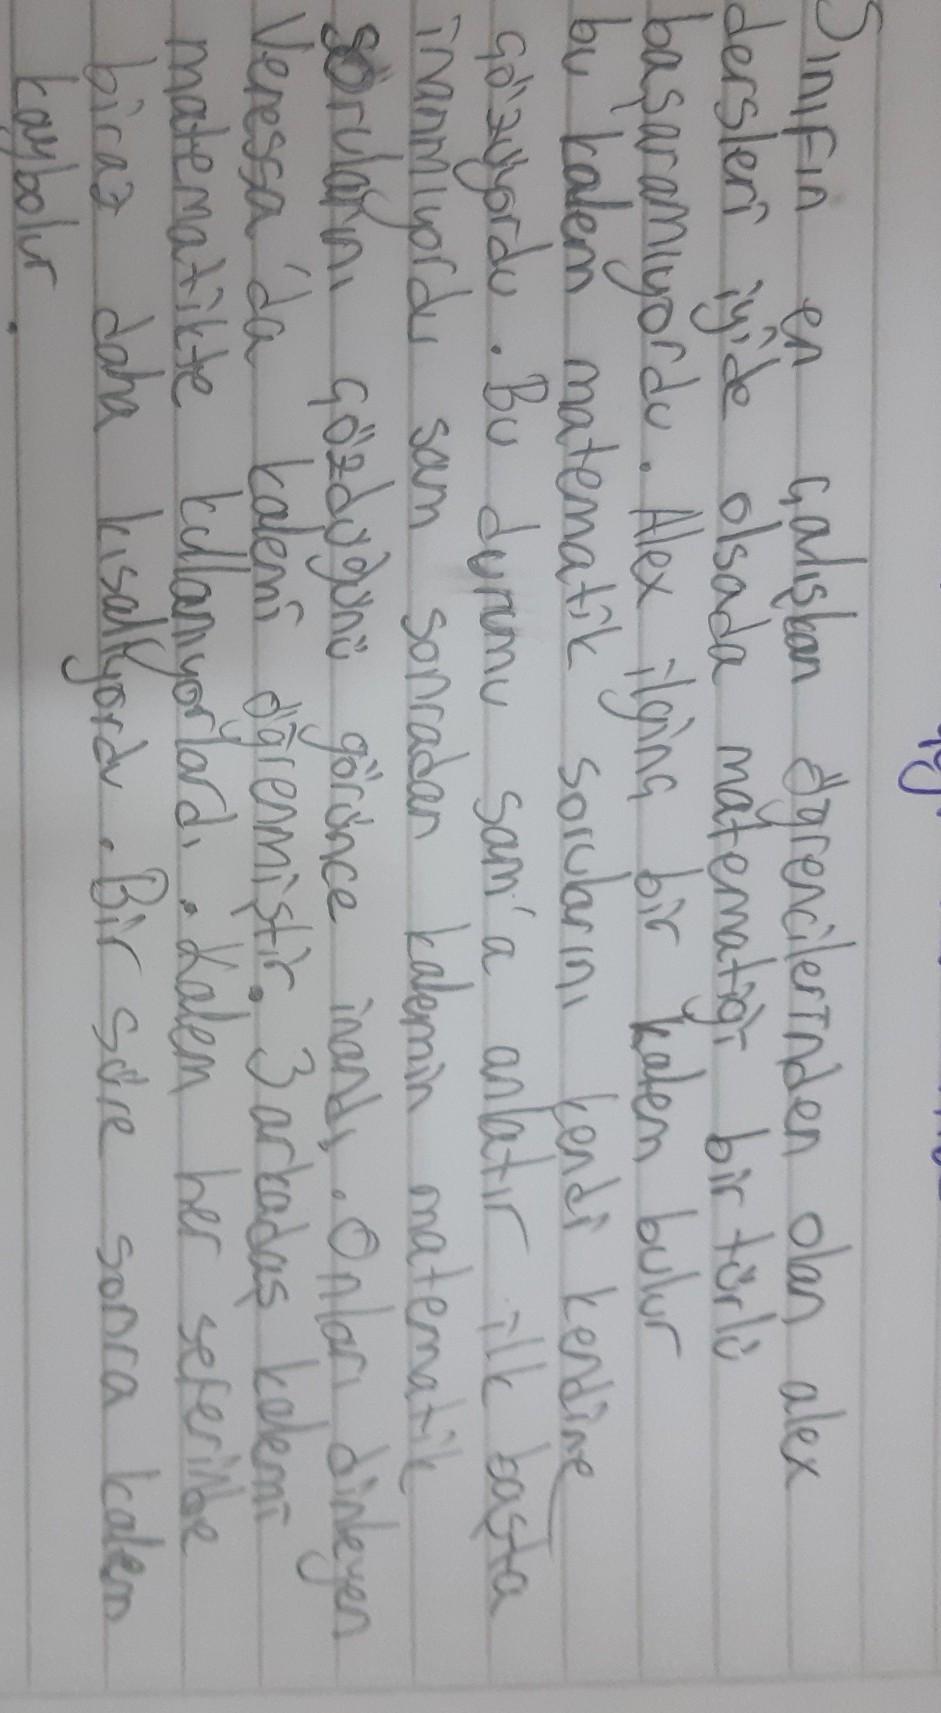 Sınıfın en çalışkan öğrencilerinden olan alex
dersleri iyide olsada matematiği bir türlü
başaramıyordu. Alex ilginç bir kalem bulur
bu kalem matematik sorularını kendi kendine
çözüyordu. Bu durumu sam'a anlatır ilk başta
inanmıyordu sam sonradan kalemin matematik
sorularını çözdüğünü görünce inandı. Onları dinleyen
Venessa'da kalemi öğrenmiştir. 3 arkadaş kalemi
matematikte kullanıyorlardı. Kalem her seferinde
biraz daha kısalıyordu. Bir süre sonra kalem
kaybolur.